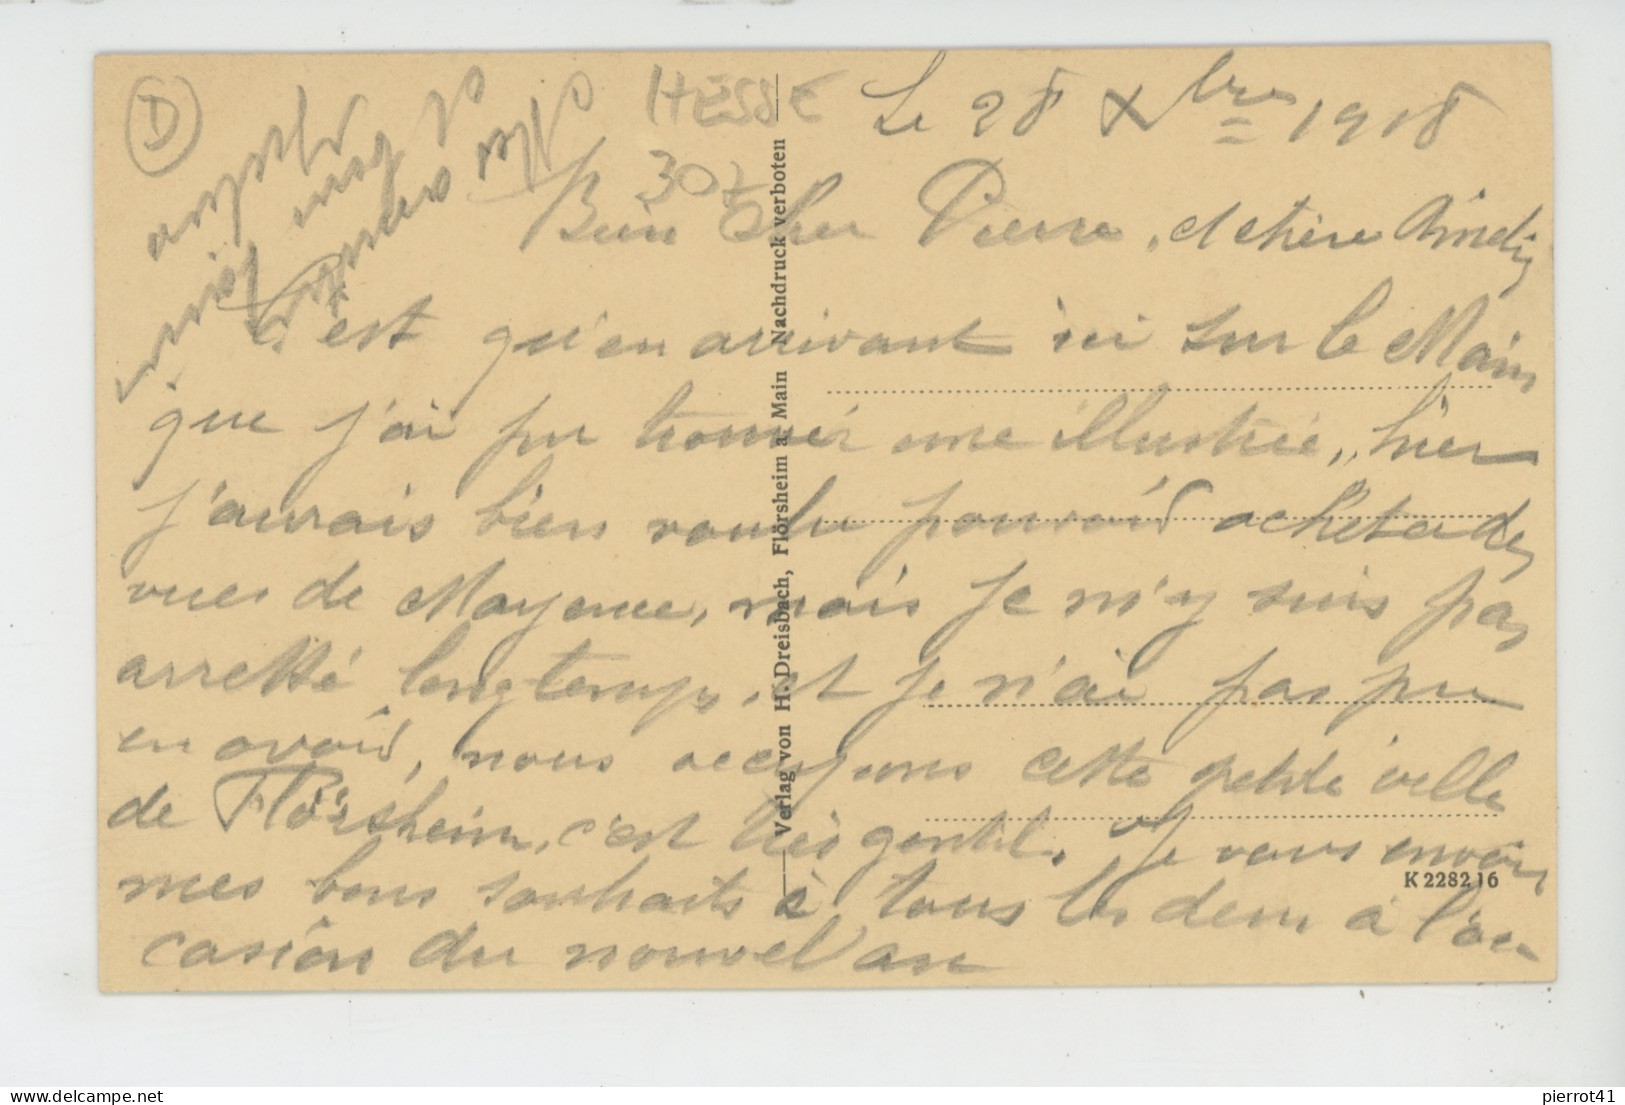 D
HESSE
30
Le 28 Xbre 1918
Bien Cher Pierre, et chère
C'est qu'en arrivant ici sur le Main
que j'ai pu trouver une illustrée, hier
j'aurais bien voulu pouvoir acheter des
vues de Mayence, mais je m'y suis pas
arretté longtemps, et je n'ai pas pu
en avoir, nous occupons cette petite ville
de Flörsheim, c'est très gentil. Je vous envoie
mes bons souhaits à tous les deux à l'oc-
casion du nouvel an
Verlag von H. Dreisbach, Flörsheim a. Main Nachdruck verboten
K 2282 16
delcampe.net
pierrot41